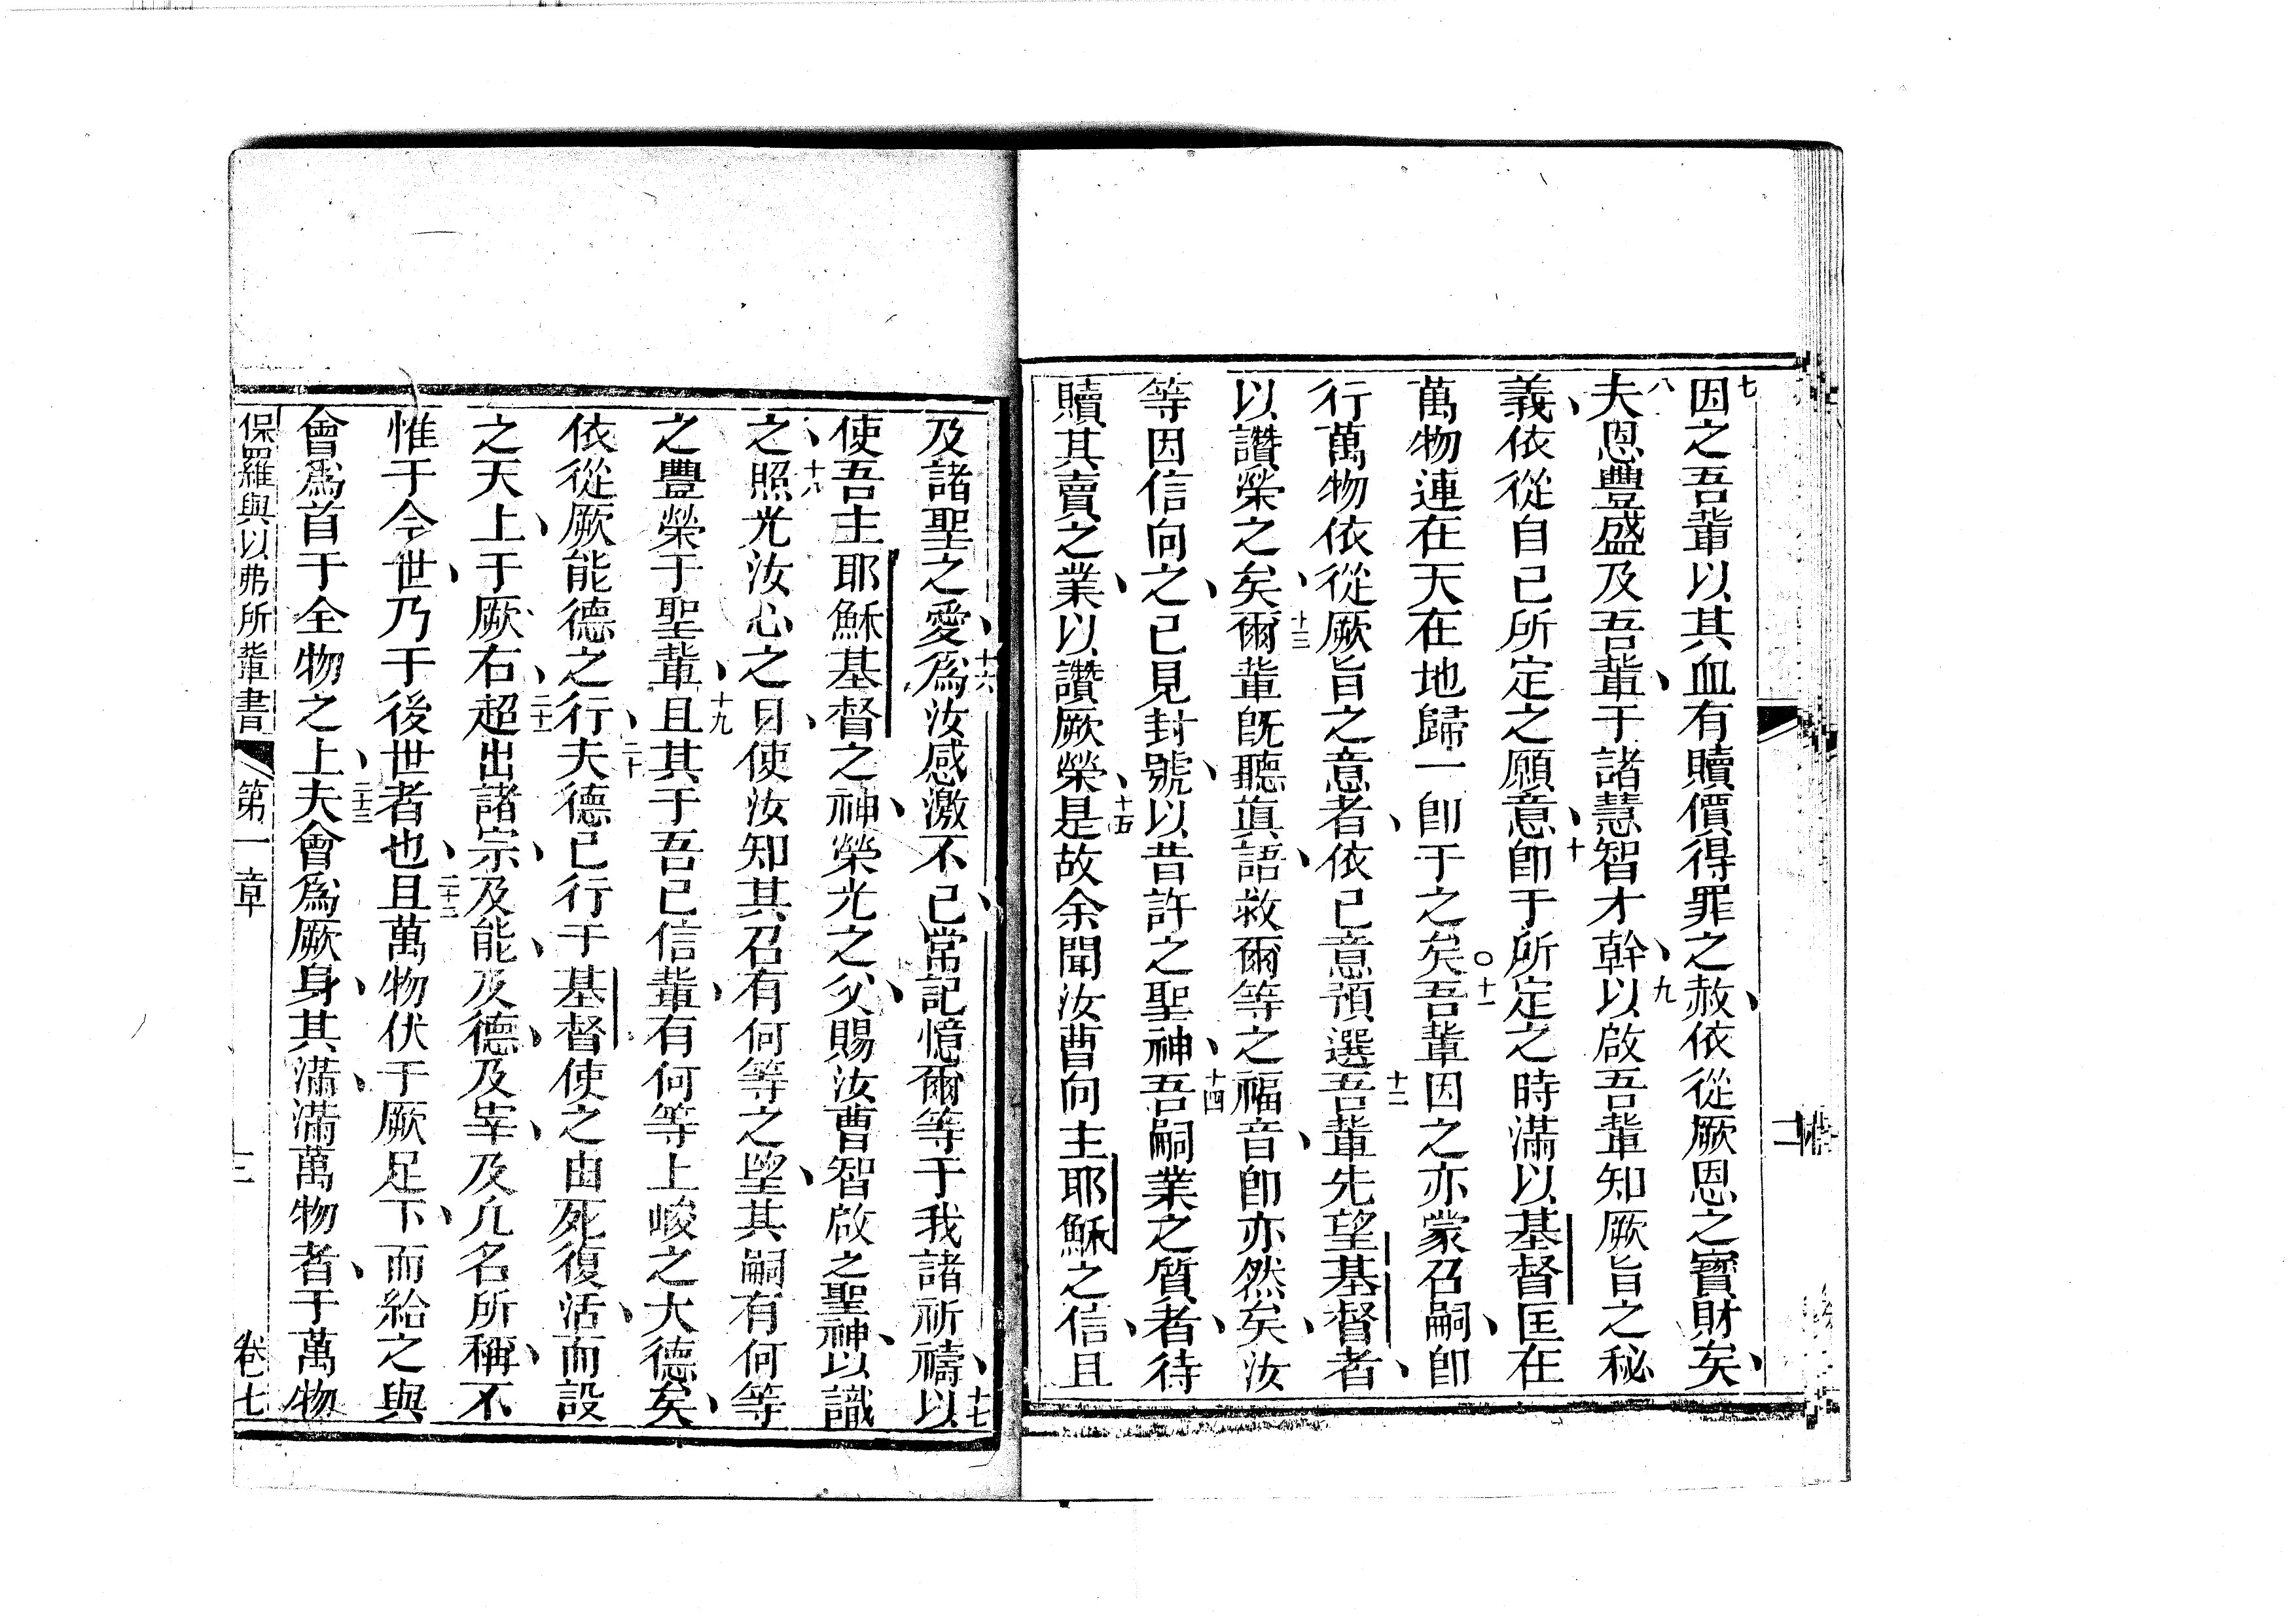 七因之吾輩以其血有贖價得罪之赦、依從厥恩之寶財矣、
八夫恩豐盛及吾輩、于諸慧智才幹、九以啟吾輩知厥旨之秘
義、依從自己所定之願意、十卽于所定之時滿以基督匡在
萬物連在天在地歸一卽于之矣○十一吾輩因之亦蒙召嗣、卽
行萬物依從厥旨之意者、依已意預選十二吾輩先望基督者、
以讚榮之矣、十三爾輩旣聽眞語、救爾等之福音、卽亦然矣、汝
等因信向之、已見封號、以昔許之聖神、十四吾嗣業之質者、待
贖其賣之業、以讚厥榮、十五是故余聞汝曹向主耶穌之信、且
及諸聖之愛、十六爲汝感激不已、常記憶爾等于我諸祈禱、十七以
使吾主耶穌基督之神、榮光之父、賜汝曹智啟之聖神、以識
之、十八照光汝心之目、使汝知其召有何等之望、其嗣有何等
之豐榮于聖輩、十九且其于吾已信輩、有何等上峻之大德矣、
依從厥能德之行、二十夫德已行于基督使之由死復活、而設
之天上、于厥右、二十一超出諸宗、及能、及德、及宰、及凢名所稱、不
惟于今世、乃于後世者也、二十二且萬物伏于厥足下、而給之與
會爲首于全物之上、二十三夫會爲厥身、其滿、滿萬物者、于萬物
保羅與以弗所輩書 第一章 三 卷七